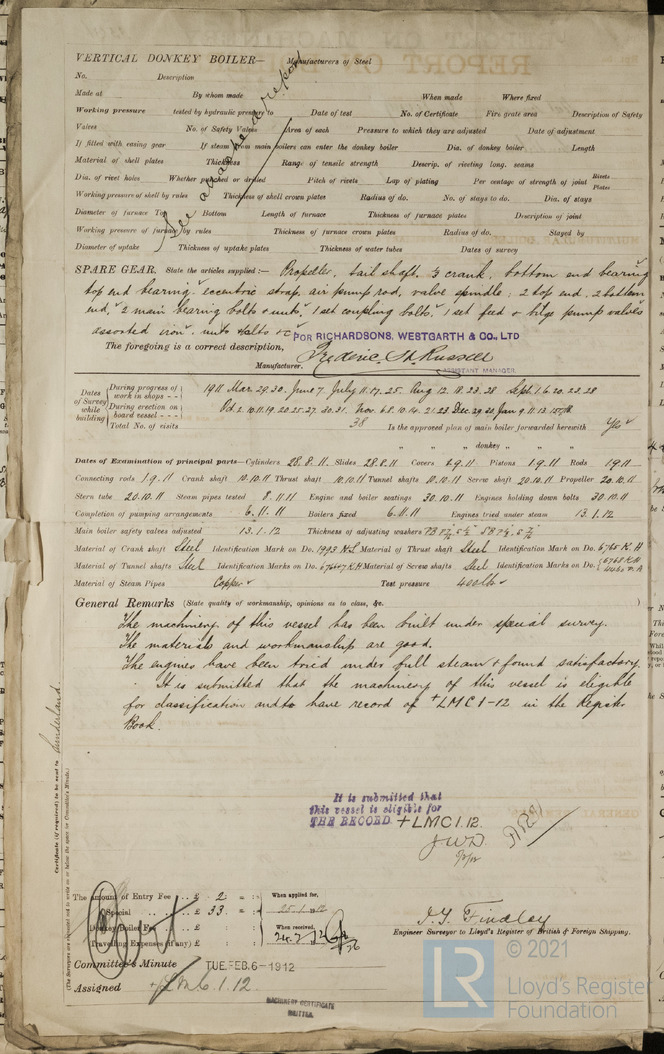 VERTICAL DONKEY BOILER— Manufacturers of Steel
No. Description
Made at By whom made When made Where fixed
Working pressure tested by hydraulic pressure to Date of test No. of Certificate Fire grate area Description of Safety
Valves No. of Safety Valves Area of each Pressure to which they are adjusted Date of adjustment
If fitted with easing gear If steam from main boilers can enter the donkey boiler Dia. of donkey boiler Length
Material of shell plates Thickness Range of tensile strength Descrip. of riveting long. seams
Dia. of rivet holes Whether punched or drilled Pitch of rivets Lap of plating Per centage of strength of joint Rivets Plates
Working pressure of shell by rules Thickness of shell crown plates Radius of do. No. of stays to do. Dia. of stays
Diameter of furnace Top Bottom Length of furnace Thickness of furnace plates Description of joint
Working pressure of furnace by rules Thickness of furnace crown plates Radius of do. Stayed by
Diameter of uptake Thickness of uptake plates Thickness of water tubes Dates of survey
See report
SPARE GEAR. State the articles supplied:— Propeller, tail shaft, 1/3 crank, bottom end bearing
top end bearing, eccentric strap, air pump rod, valve spindle, 2 top end, 2 bottom
end, & 2 main bearing bolts & nuts, 1 set coupling bolts, 1 set feed & bilge pump valves
assorted iron, nuts & bolts &c
FOR RICHARDSONS, WESTGARTH & Co., LTD
The foregoing is a correct description,
Frederic Russell
Manufacturer. ASSISTANT MANAGER.
Dates of Survey while building
During progress of work in shops - - 1911 Mar. 29. 30. June 7. July 11. 17. 25. Aug 12. 18. 23. 28 Sept. 1. 6. 20. 23. 28
During erection on board vessel - - - Oct. 2. 10. 11. 19. 20. 25. 27. 30. 31. Nov. 6. 8. 10. 14. 21. 23 Dec. 29. Jan. 9. 11. 13.
Total No. of visits 38 Is the approved plan of main boiler forwarded herewith Yes
" " " donkey " " "
Dates of Examination of principal parts—Cylinders 28.8.11 Slides 28.8.11 Covers 1.9.11 Pistons 1.9.11 Rods 1.9.11
Connecting rods 1.9.11 Crank shaft 10.10.11 Thrust shaft 10.10.11 Tunnel shafts 10.10.11 Screw shaft 20.10.11 Propeller 20.10.11
Stern tube 20.10.11 Steam pipes tested 8.11.11 Engine and boiler seatings 30.10.11 Engines holding down bolts 30.10.11
Completion of pumping arrangements 6.11.11 Boilers fixed 6.11.11 Engines tried under steam 13.1.12
Main boiler safety valves adjusted 13.1.12 Thickness of adjusting washers
Material of Crank shaft Steel Identification Mark on Do. Material of Thrust shaft Steel Identification Mark on Do. 6765 K.H
Material of Tunnel shafts Steel Identification Marks on Do. Material of Screw shafts Steel Identification Marks on Do.
Material of Steam Pipes Copper Test pressure 400 lbs
General Remarks (State quality of workmanship, opinions as to class, &c. )
The machinery of this vessel has been built under special survey.
The materials and workmanship are good.
The engines have been tried under full steam & found satisfactory.
It is submitted that the machinery of this vessel is eligible
for classification and to have record of + LMC 1-12 in the Register
Book.
Certificate (if required) to be sent to Sunderland
(The Surveyors are requested not to write on or below the space for Committee's Minute.)
It is submitted that
this vessel is eligible for
THE RECORD + LMC 1.12.
The amount of Entry Fee .. £ 2 : :
Special .. .. £ 33 : :
Donkey Boiler Fee .. .. £ : :
Travelling Expenses (if any) £ : :
When applied for,
25.1.1912
When received,
J. T. Findley
Engineer Surveyor to Lloyd's Register of British & Foreign Shipping.
Committee's Minute TUE. FEB. 6-1912
Assigned + LMC 1.12
MACHINERY CERTIFICATE
WRITTEN.
LR © 2021
Lloyd's Register
Foundation